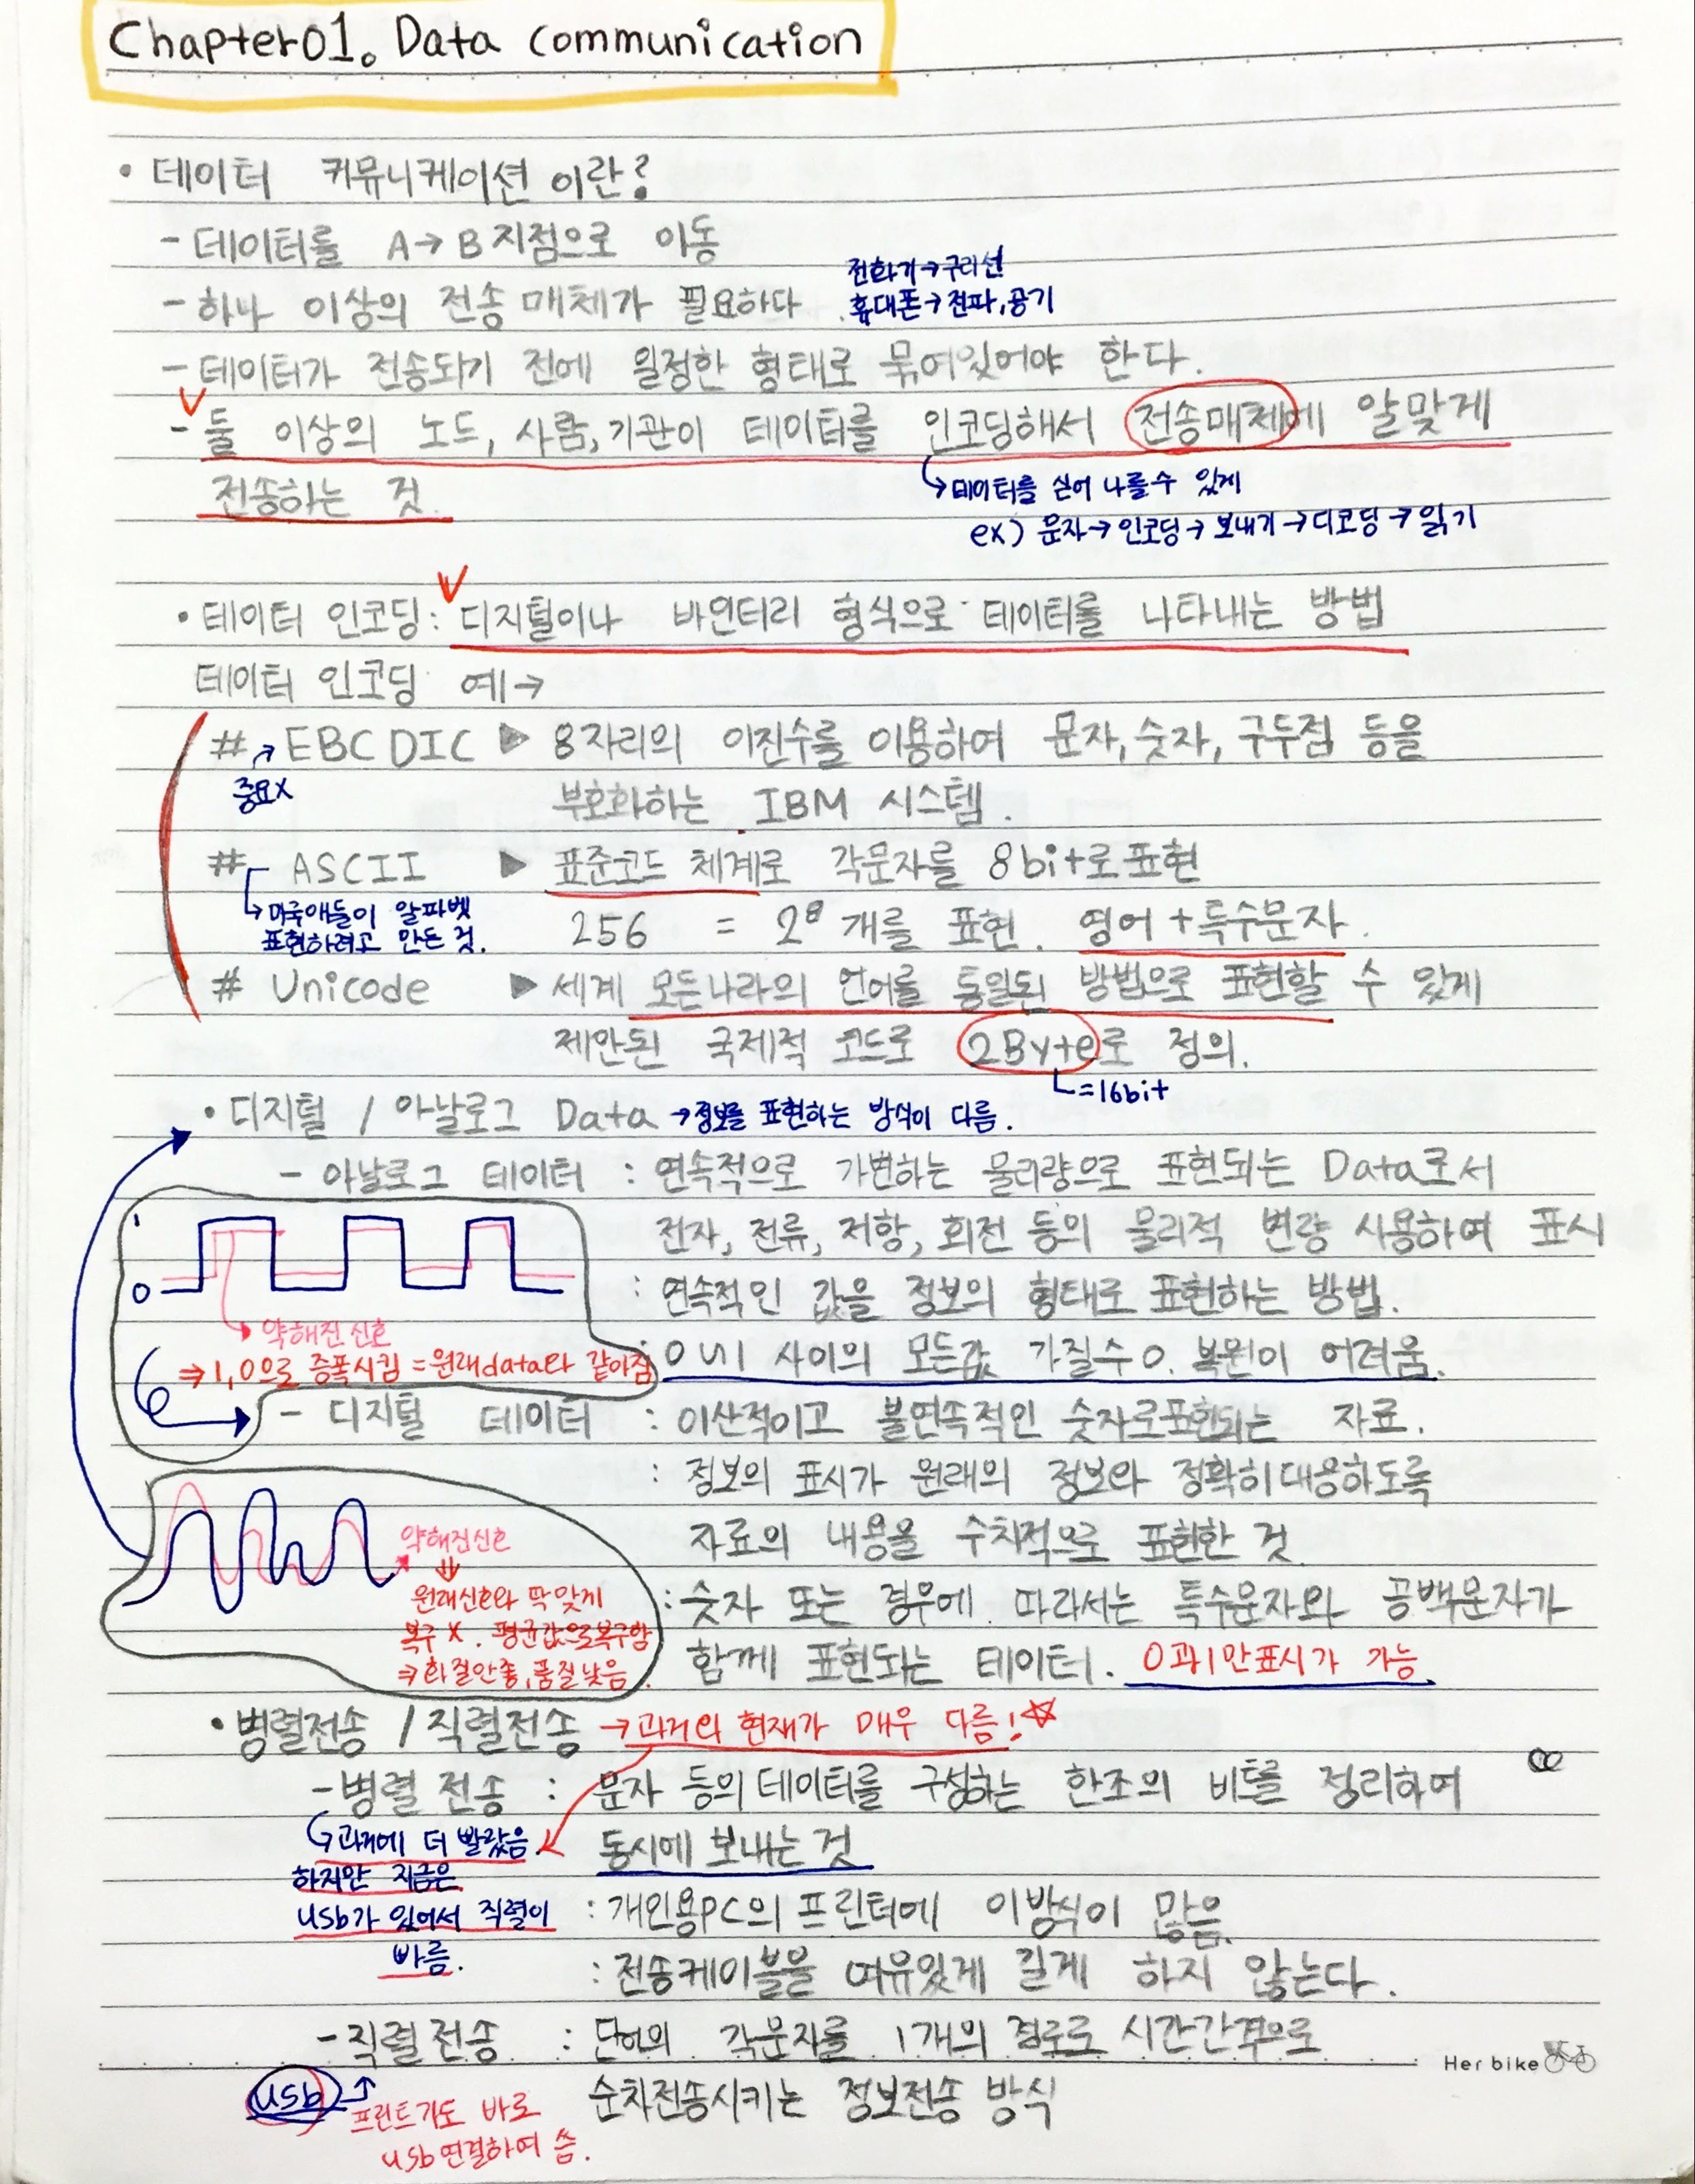 Chapter01. Data communication
• 데이터 커뮤니케이션 이란?
- 데이터를 A→B 지점으로 이동
전화기→구리선
- 하나 이상의 전송 매체가 필요하다.
휴대폰→전파,공기
- 데이터가 전송되기 전에 일정한 형태로 묶어있어야 한다.
- 둘 이상의 노드, 사람, 기관이 데이터를 인코딩해서 전송매체에 알맞게
전송하는 것.
↳데이터를 싣어 나를수 있게
ex) 문자→인코딩→보내기→디코딩→읽기
• 데이터 인코딩: 디지털이나 바인터리 형식으로 데이터를 나타내는 방법
데이터 인코딩 예→
# EBCDIC ▶ 8자리의 이진수를 이용하여 문자, 숫자, 구두점 등을
중요x
부호화하는 IBM 시스템.
# ASCII ▶ 표준코드 체계로 각문자를 8bit로 표현
↳미국애들이 알파벳
표현하려고 만든 것.
256 = 2⁸ 개를 표현. 영어+특수문자.
# Unicode ▶ 세계 모든나라의 언어를 통일된 방법으로 표현할 수 있게
제안된 국제적 코드로 2Byte로 정의.
=16bit
• 디지털 / 아날로그 Data →정보를 표현하는 방식이 다름.
- 아날로그 데이터 : 연속적으로 가변하는 물리량으로 표현되는 Data로서
전자, 전류, 저항, 회전 등의 물리적 변량 사용하여 표시
: 연속적인 값을 정보의 형태로 표현하는 방법.
: 0 n 1 사이의 모든값 가질수 0. 복원이 어려움.
1
0
약해진 신호
⇒1,0으로 증폭시킴 = 원래data와 같아짐
- 디지털 데이터 : 이산적이고 불연속적인 숫자로표현되는 자료.
: 정보의 표시가 원래의 정보와 정확히대응하도록
자료의 내용을 수치적으로 표현한 것.
: 숫자 또는 경우에 따라서는 특수문자와 공백문자가
함께 표현되는 데이터. 0과1만표시가 가능.
약해진신호
⇓
원래신호와 딱 맞게
복구 X. 평균값으로복구함
⇒화질안좋,품질낮음.
• 병렬전송 / 직렬전송 →과거와 현재가 매우 다름!☆
- 병렬 전송 : 문자 등의 데이터를 구성하는 한조의 비트를 정리하여
동시에 보내는 것
↳과거에 더 빨랐음.
하지만 지금은
usb가 있어서 직렬이
빠름.
: 개인용PC의 프린터에 이방식이 많음.
: 전송케이블을 여유있게 길게 하지 않는다.
- 직렬 전송 : 단어의 각문자를 1개의 경로로 시간간격으로
순차전송시키는 정보전송 방식
usb
프린트기도 바로
usb연결하여 씀.
Her bike